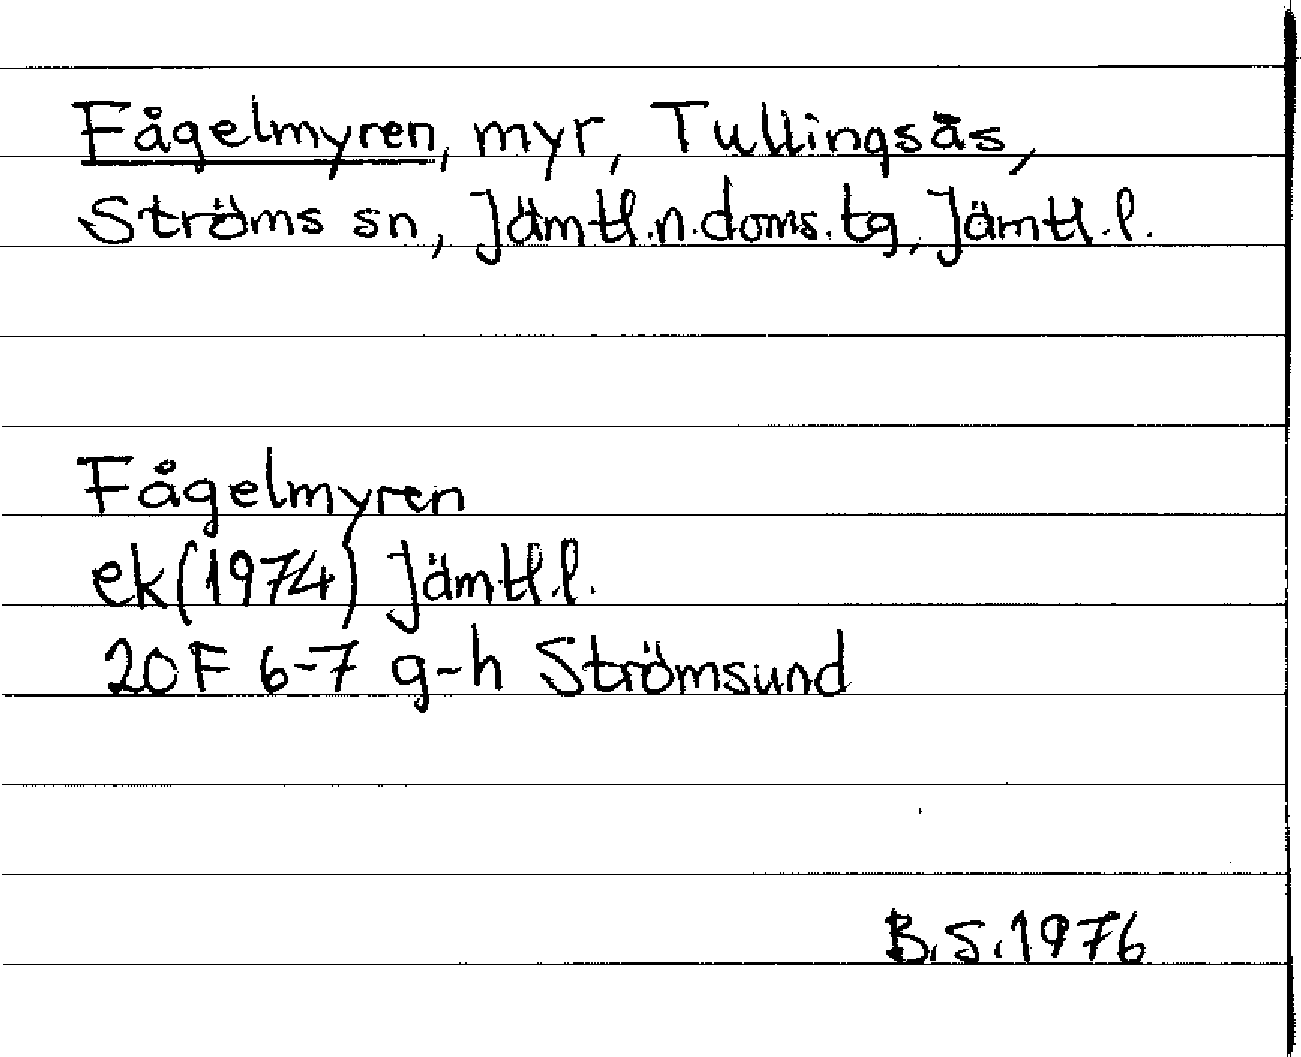 Fågelmyren, myr, Tullingsås,
Ströms sn, Jämtl.n.doms.tg, Jämtl.l.
Fågelmyren
ek(1974) Jämtl.l.
20F 6-7 g-h Strömsund
B.S.1976